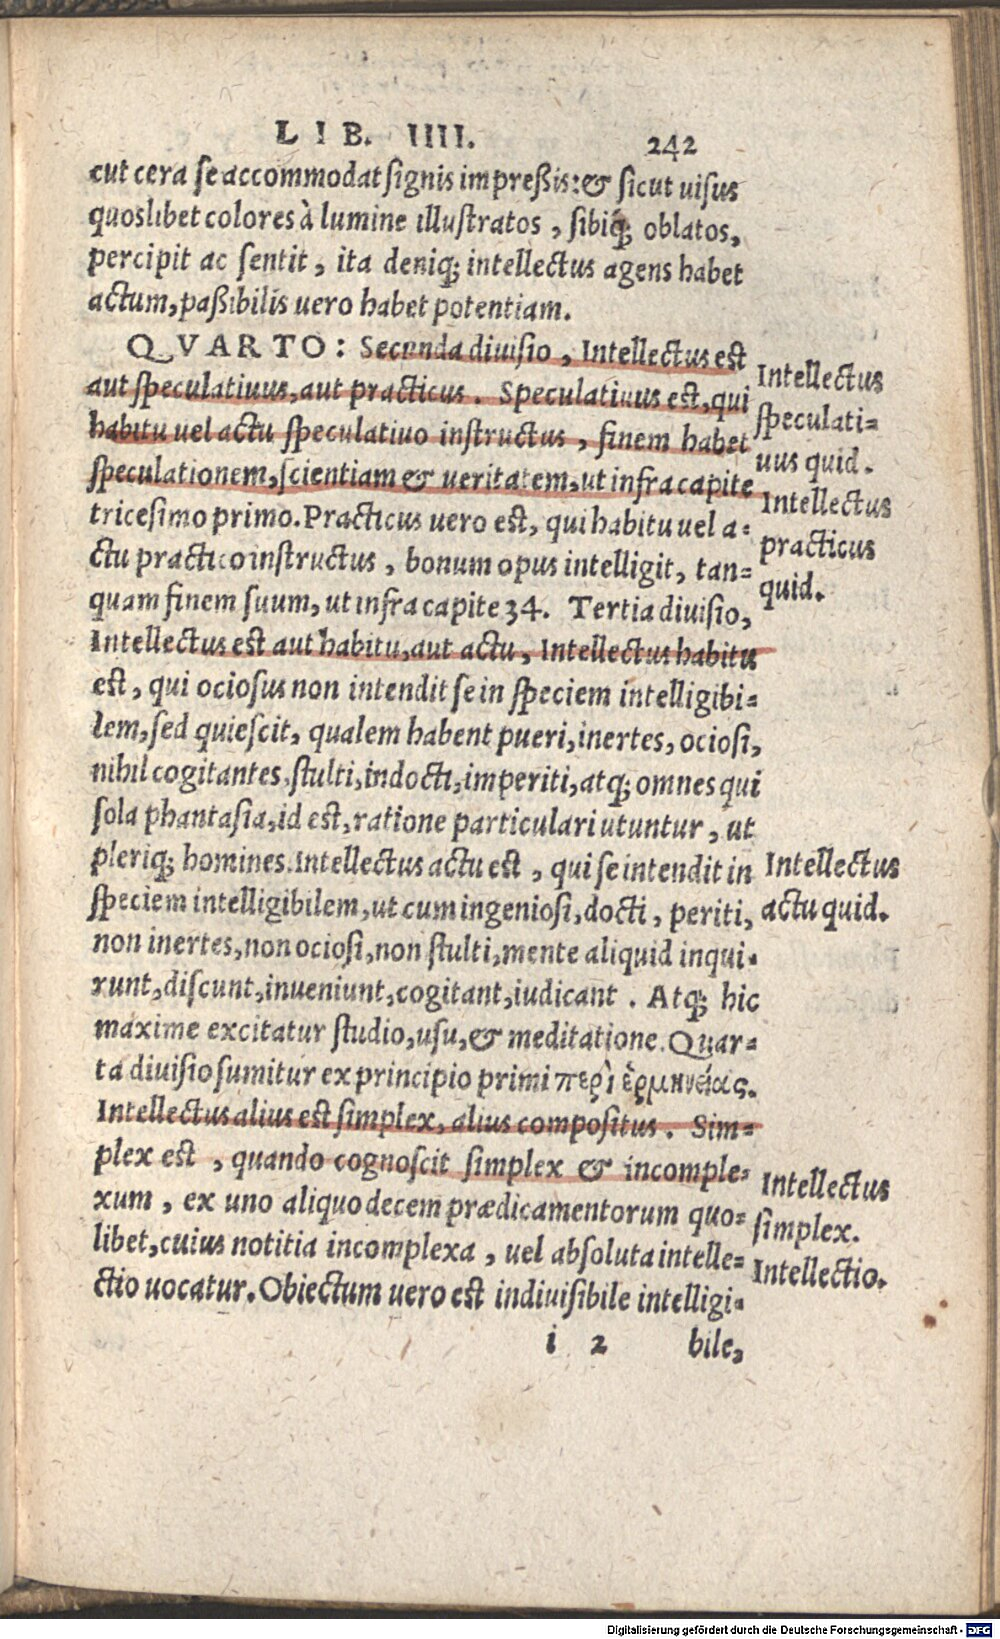 LIB. IIII. 242
cut cera se accommodat signis impreßis: & sicut uisus
quoslibet colores à lumine illustratos, sibiq; oblatos,
percipit ac sentit, ita deniq; intellectus agens habet
actum, paßibilis uero habet potentiam.
QVARTO: Secunda diuisio, Intellectus est
aut speculatiuus, aut practicus. Speculatiuus est, qui
habitu uel actu speculatiuo instructus, finem habet
speculationem, scientiam & ueritatem, ut infra capite
tricesimo primo. Practicus uero est, qui habitu uel a=
ctu practico instructus, bonum opus intelligit, tan=
quam finem suum, ut infra capite 34. Tertia diuisio,
Intellectus est aut habitu, aut actu, Intellectus habitu
est, qui ociosus non intendit se in speciem intelligibi=
lem, sed quiescit, qualem habent pueri, inertes, ociosi,
nihil cogitantes, stulti, indocti, imperiti, atq; omnes qui
sola phantasia, id est, ratione particulari utuntur, ut
pleriq; homines. Intellectus actu est, qui se intendit in
speciem intelligibilem, ut cum ingeniosi, docti, periti,
non inertes, non ociosi, non stulti, mente aliquid inqui=
runt, discunt, inueniunt, cogitant, iudicant. Atq; hic
maxime excitatur studio, usu, & meditatione. Quar=
ta diuisio sumitur ex principio primi περὶ ἑρμηνείας.
Intellectus alius est simplex, alius compositus. Sim=
plex est, quando cognoscit simplex & incomple=
xum, ex uno aliquo decem prædicamentorum quo=
libet, cuius notitia incomplexa, uel absoluta intelle=
ctio uocatur. Obiectum uero est indiuisibile intelligi=
i 2 bile,
Intellectus
speculati=
uus quid.
Intellectus
practicus
quid.
Intellectus
actu quid.
Intellectus
simplex.
Intellectio.
Digitalisierung gefördert durch die Deutsche Forschungsgemeinschaft - DFG